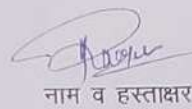 नाम व हस्ताक्षर